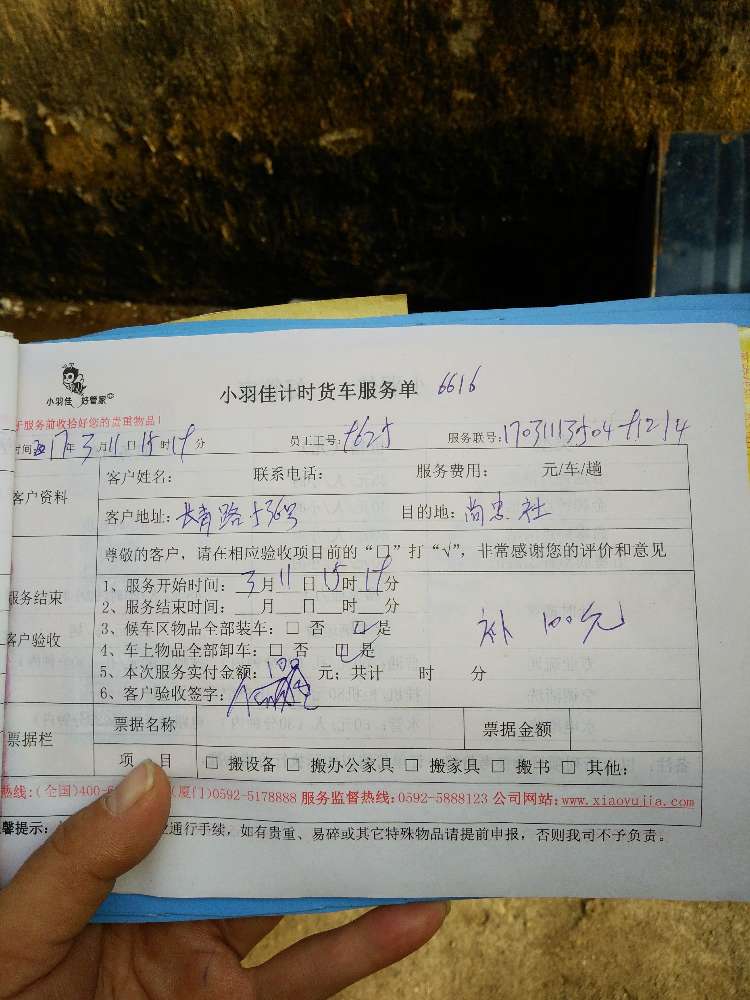 小羽佳 好管家
小羽佳计时货车服务单 6616
于服务前收拾好您的贵重物品!
时间 17年3月11日15时17分 员工工号: 服务联号:
客户资料
客户姓名: 联系电话: 服务费用: 元/车/趟
客户地址:长青路 目的地:尚忠社
尊敬的客户,请在相应验收项目前的“口”打“√”,非常感谢您的评价和意见
服务结束
客户验收
1、服务开始时间:3月11日15时17分
2、服务结束时间: 月 日 时 分
3、候车区物品全部装车:□ 否 □ 是
4、车上物品全部卸车:□ 否 □ 是
补 100元
5、本次服务实付金额:100元;共计 时 分
6、客户验收签字:
票据栏
票据名称 票据金额
项 目 □ 搬设备 □ 搬办公家具 □ 搬家具 □ 搬书 □ 其他:
热线:(全国)400-6 (厦门)0592-5178888 服务监督热线:0592-5888123 公司网站:www.xiaoyujia.com
馨提示: 业通行手续,如有贵重、易碎或其它特殊物品请提前申报,否则我司不予负责。